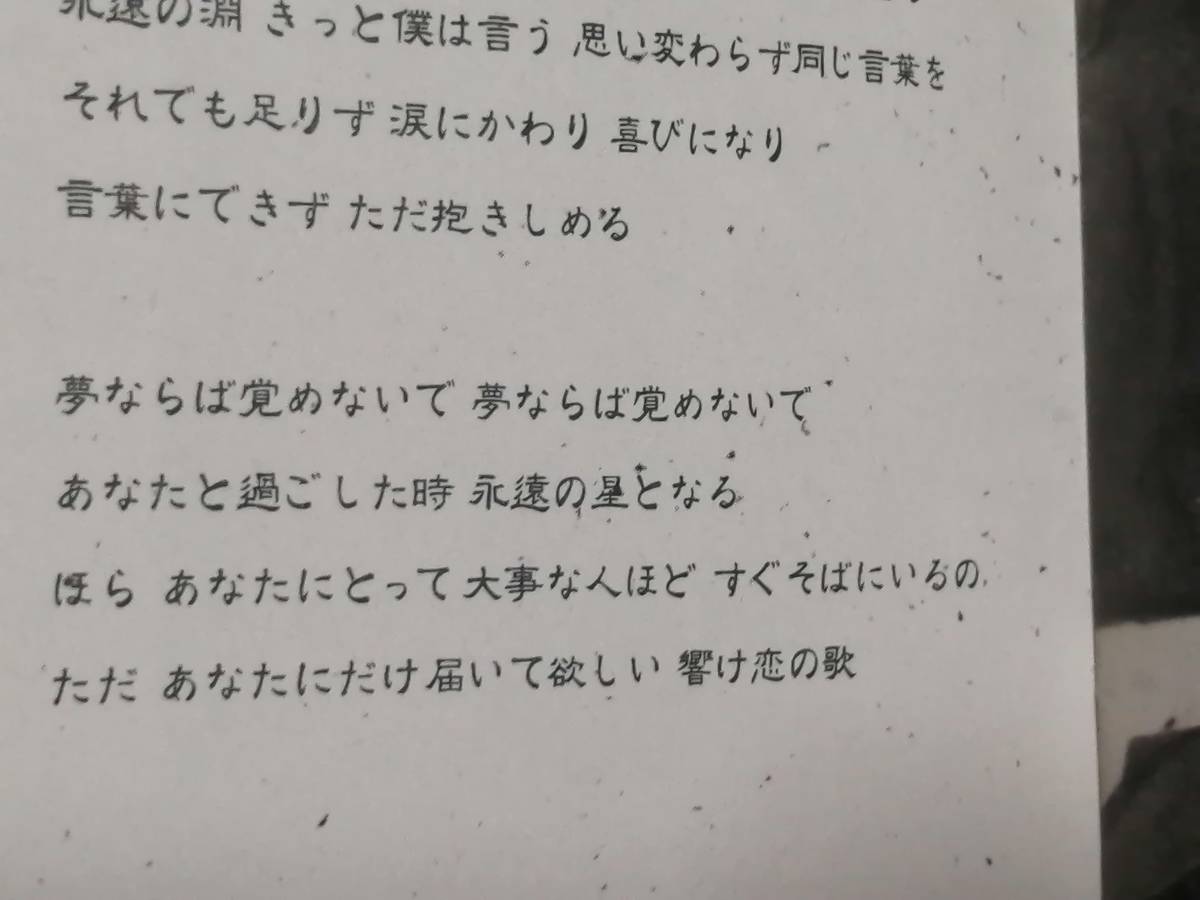 永遠の淵 きっと僕は言う 思い変わらず同じ言葉を
それでも足りず 涙にかわり 喜びになり
言葉にできず ただ抱きしめる
夢ならば覚めないで 夢ならば覚めないで
あなたと過ごした時 永遠の星となる
ほら あなたにとって大事な人ほど すぐそばにいるの
ただ あなたにだけ届いて欲しい 響け恋の歌